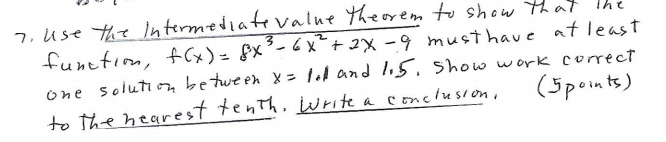 7. Use the Intermediate value theorem to show that the
function, f(x) = 8x³ - 6x² + 2x - 9 must have at least
one solution between x = 1.1 and 1.5. Show work correct
to the nearest tenth. Write a conclusion. (5 points)